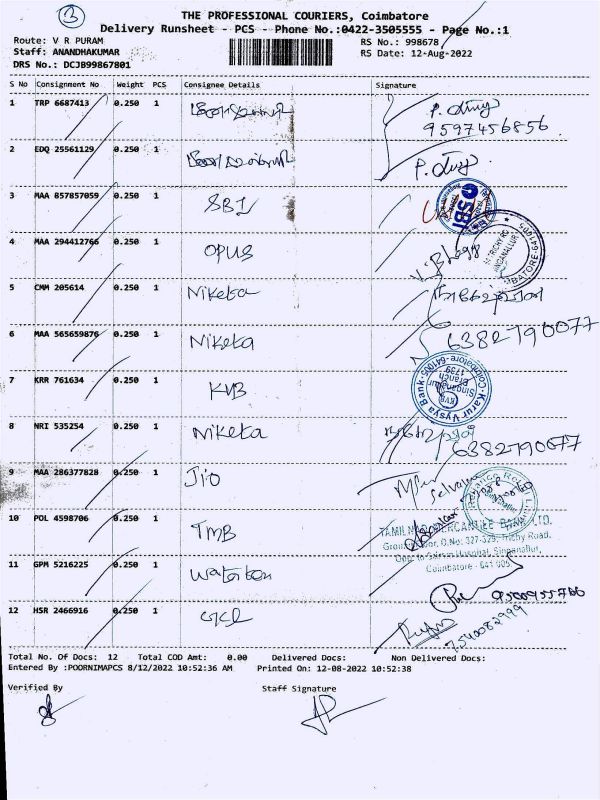 3
THE PROFESSIONAL COURIERS, Coimbatore
Delivery Runsheet - PCS - Phone No.:0422-3505555 - Page No.:1
Route: V R PURAM
RS No.: 998678
Staff: ANANDHAKUMAR
RS Date: 12-Aug-2022
DRS No.: DCJB99867801
S No Consignment No Weight PCS Consignee Details Signature
1 TRP 6687413 0.250 1
9597456856
2 EDQ 25561129 0.250 1
3 MAA 857857059 0.250 1 SBI
SBI
4 MAA 294412766 0.250 1 OPUS
5 CMM 205614 0.250 1 Niketa
6 MAA 565659876 0.250 1 Niketa 6382790077
7 KRR 761634 0.250 1 KVB
Karur Vysya Bank Coimbatore-641005
Singanallur Branch 1739
KVB
8 NRI 535254 0.250 1 Niketa 6382790077
9 MAA 286377828 0.250 1 Jio
Reliance Retail
10 POL 4598706 0.250 1 TMB
TAMILNAD MERCANTILE BANK LTD.
Ground Floor, D.No: 327-329, Trichy Road,
Singanallur,
Coimbatore - 641 005.
11 GPM 5216225 0.250 1
12 HSR 2466916 0.250 1
7540082999
Total No. Of Docs: 12 Total COD Amt: 0.00 Delivered Docs: Non Delivered Docs:
Entered By :POORNIMAPCS 8/12/2022 10:52:36 AM Printed On: 12-08-2022 10:52:38
Verified By Staff Signature